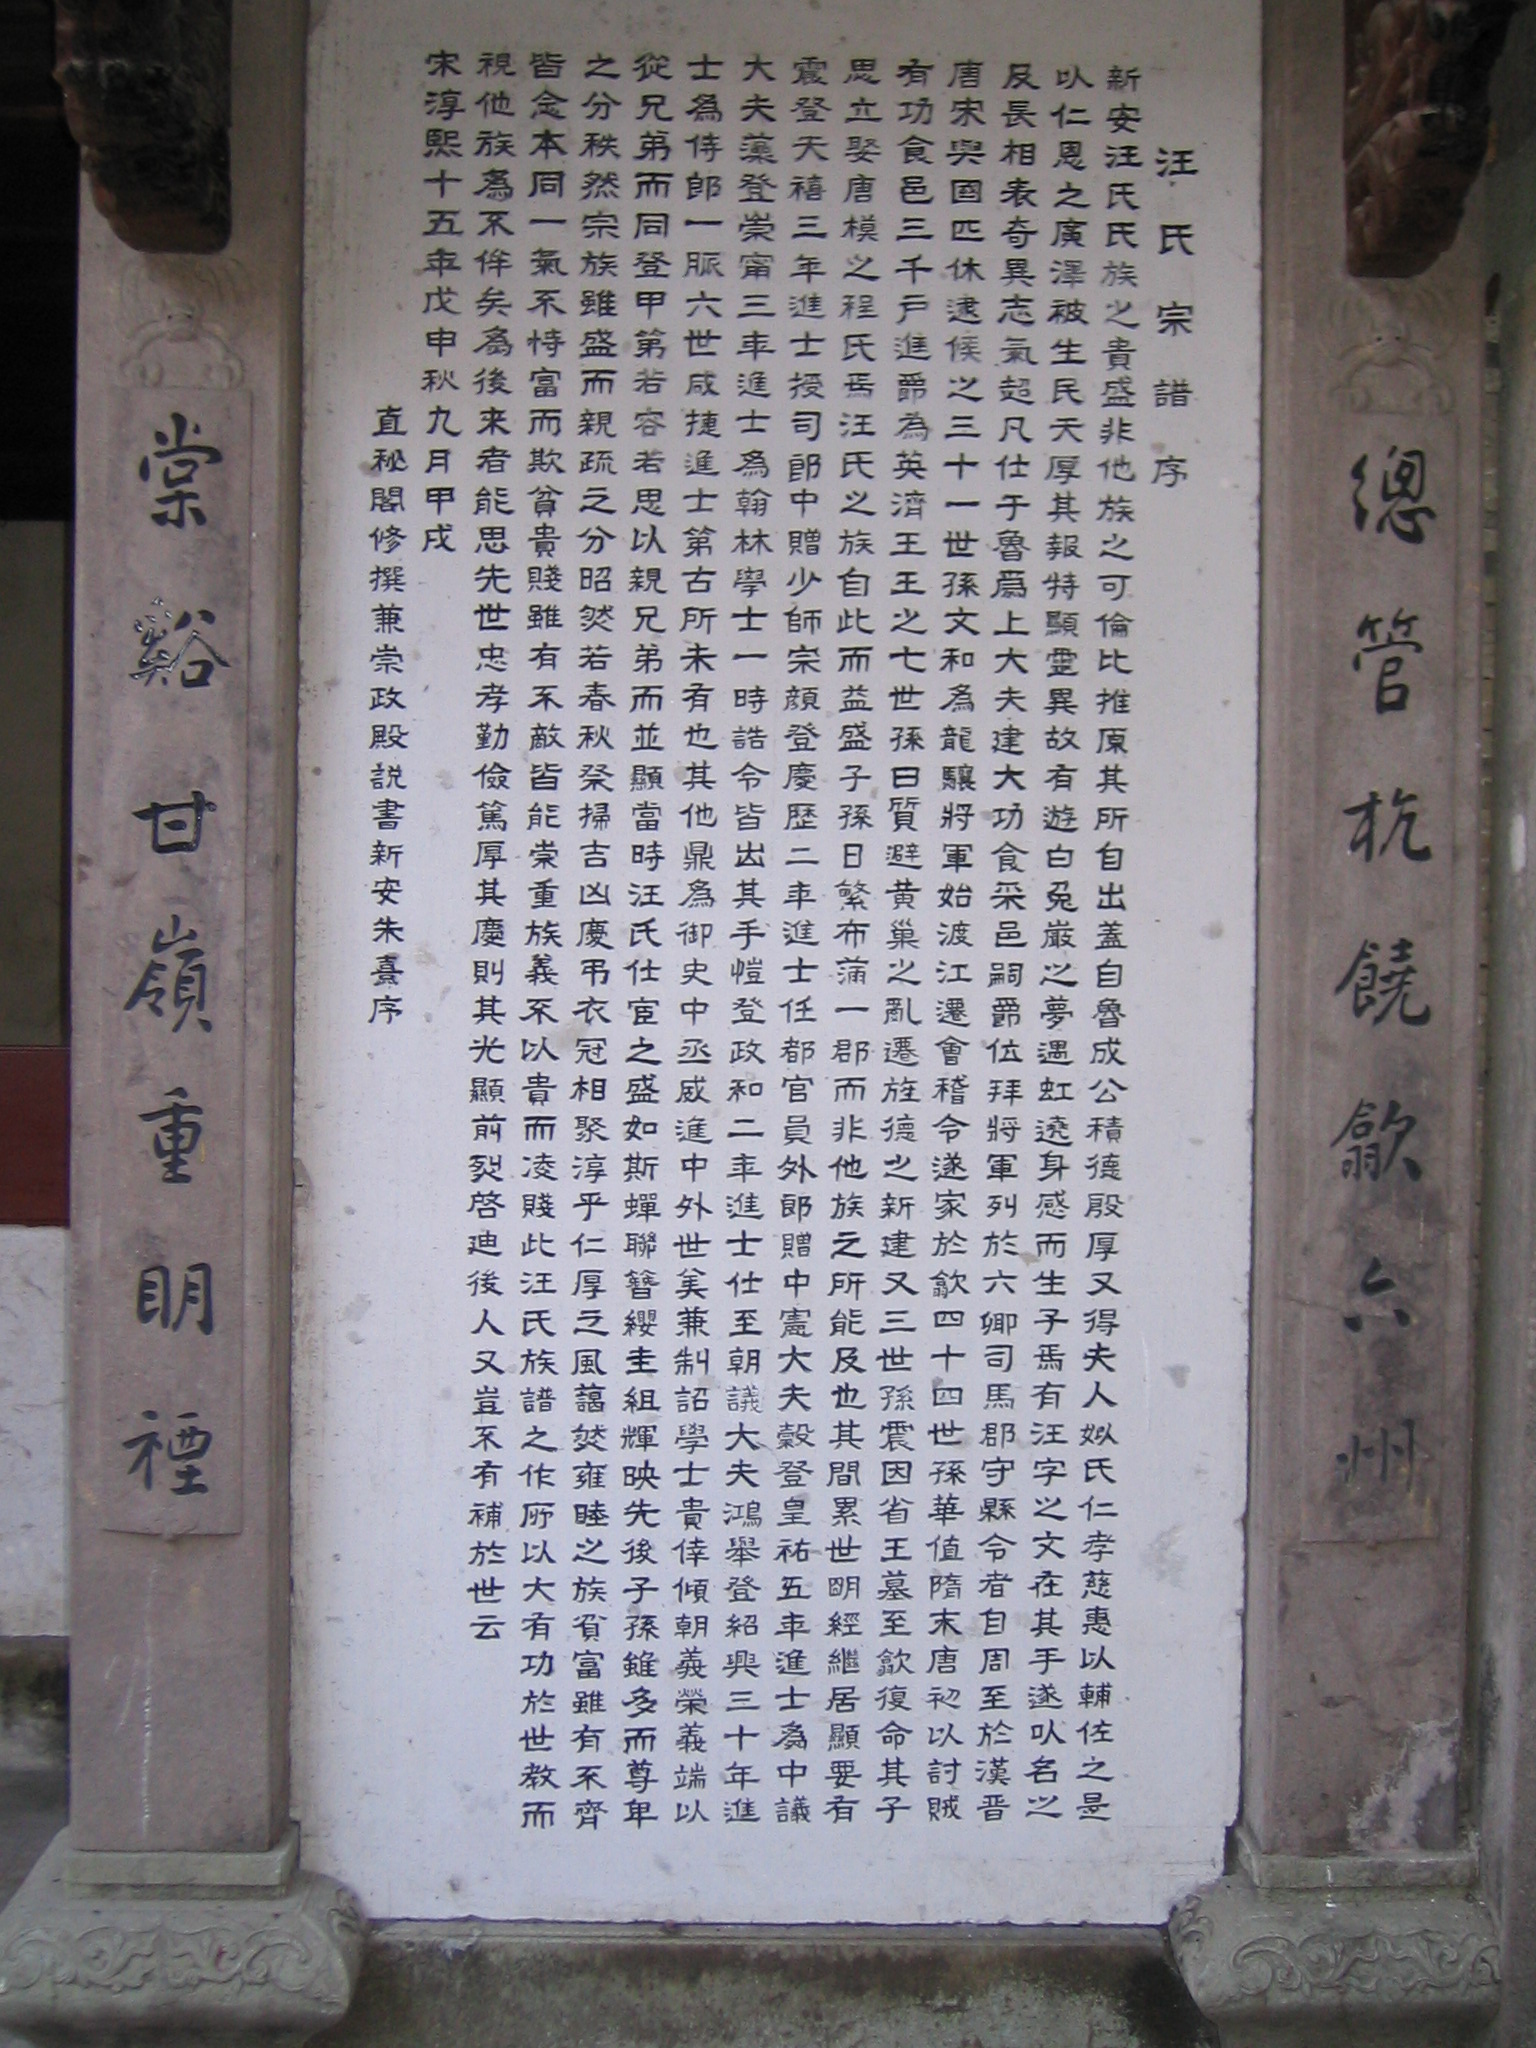 總管杭饒歙六州
汪氏宗譜序
新安汪氏氏族之貴盛非他族之可倫比推原其所自出蓋自魯成公積德殷厚又得夫人姒氏仁孝慈惠以輔佐之是
以仁恩之廣澤被生民天厚其報特顯靈異故有遊白兔巖之夢遇虹遶身感而生子焉有汪字之文在其手遂以名之
及長相表奇異志氣超凡仕于魯爲上大夫建大功食采邑嗣爵位拜將軍列於六卿司馬郡守縣令者自周至於漢晉
唐宋與國匹休逮侯之三十一世孫文和為龍驤將軍始渡江遷會稽令遂家於歙四十四世孫華值隋末唐初以討賊
有功食邑三千戶進爵為英濟王王之七世孫曰質避黃巢之亂遷旌德之新建又三世孫震因省王墓至歙復命其子
思立娶唐模之程氏焉汪氏之族自此而益盛子孫日繁布滿一郡而非他族之所能及也其間累世明經繼居顯要有
震登天禧三年進士授司郎中贈少師宗顏登慶歷二年進士任都官員外郎贈中憲大夫穀登皇祐五年進士為中議
大夫藻登崇甯三年進士爲翰林學士一時誥令皆出其手愷登政和二年進士仕至朝議大夫鴻舉登紹興三十年進
士爲侍郎一脈六世咸捷進士第古所未有也其他鼎爲御史中丞威進中外世美兼制詔學士貴倖傾朝義榮義端以
從兄弟而同登甲第若容若思以親兄弟而並顯當時汪氏仕宦之盛如斯蟬聯簪纓圭組輝映先後子孫雖多而尊卑
之分秩然宗族雖盛而親疏之分昭然若春秋祭掃吉凶慶弔衣冠相聚淳乎仁厚之風藹然雍睦之族貧富雖有不齊
皆念本同一氣不恃富而欺貧貴賤雖有不敵皆能崇重族義不以貴而凌賤此汪氏族譜之作所以大有功於世教而
視他族爲不侔矣爲後来者能思先世忠孝勤儉篤厚其慶則其光顯前烈啓迪後人又豈不有補於世云
宋淳熙十五年戊申秋九月甲戌
直秘閣修撰兼崇政殿説書新安朱熹序
棠谿甘嶺重明禋